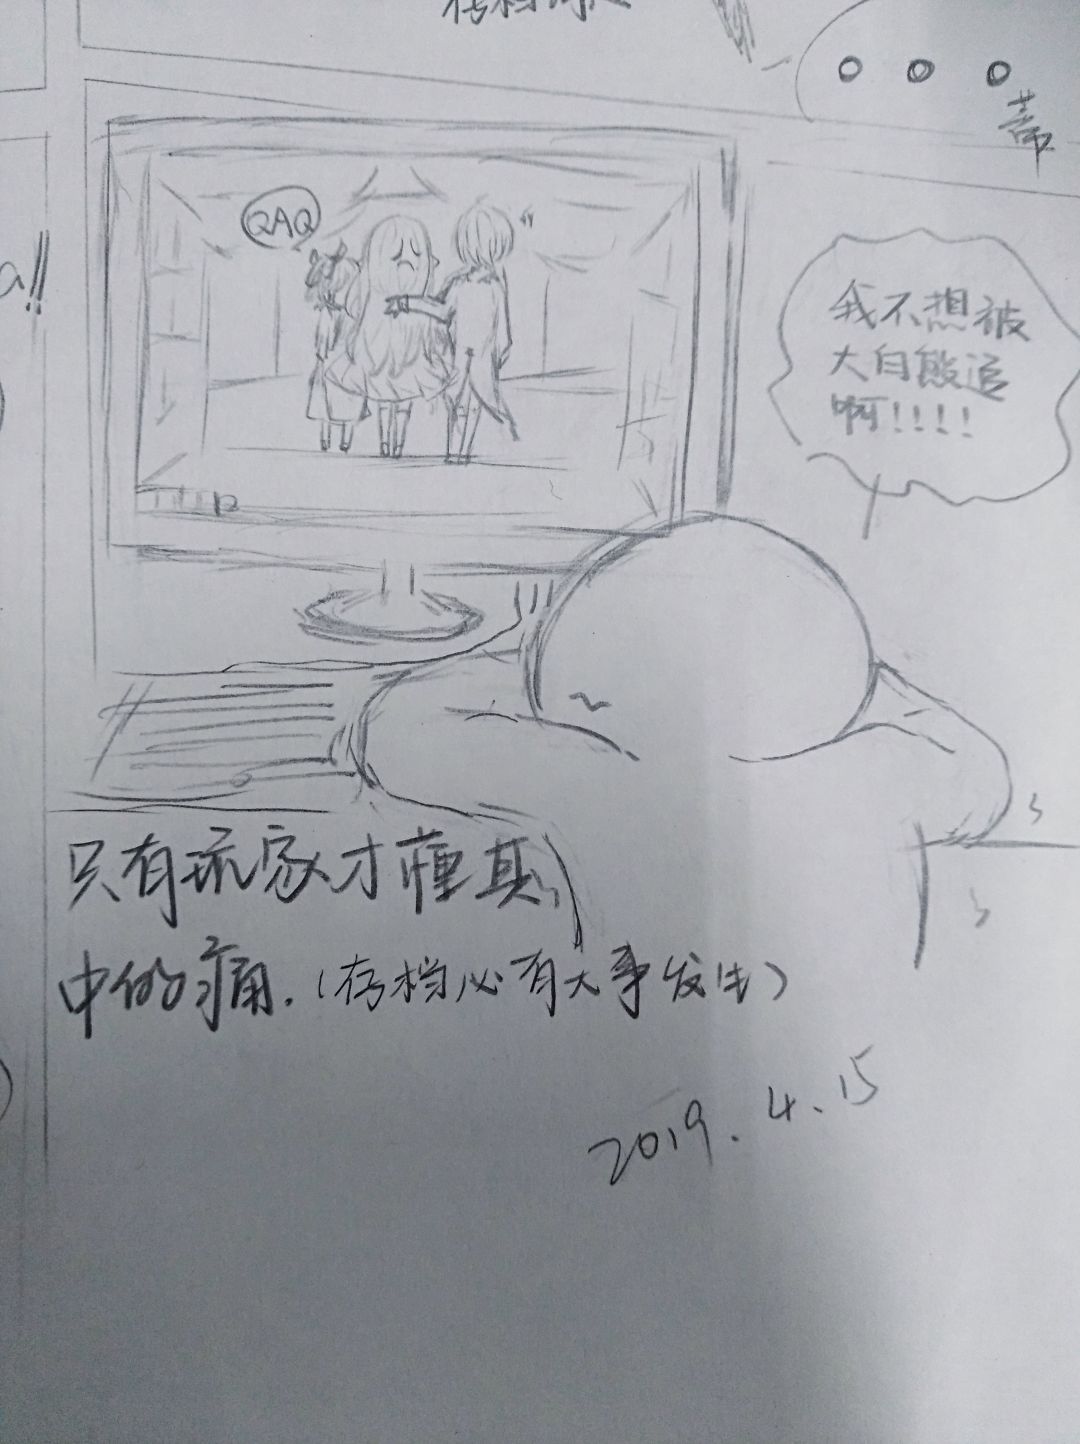 蒂
a!!
QAQ
我不想被
大白熊追
啊!!!!
只有玩家才懂其
中的痛.(存档必有大事发生)
2019.4.15